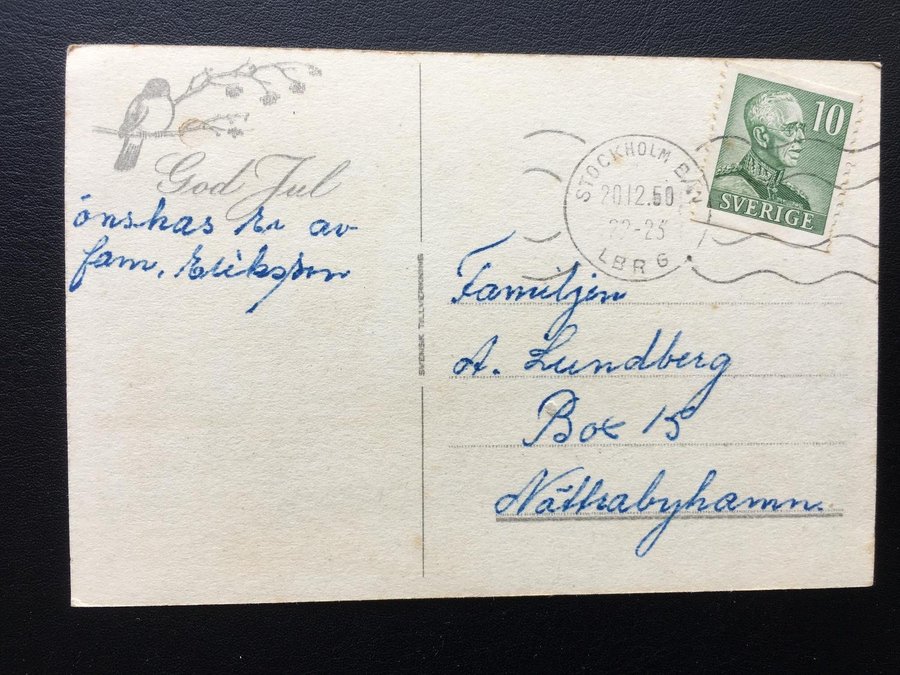 God Jul
önskas Er av
fam. Eriksson
SVENSK TILLVERKNING
STOCKHOLM
20.12.50
LBR 6
10
SVERIGE
Familjen
A. Lundberg
Box 15
Nättrabyhamn.